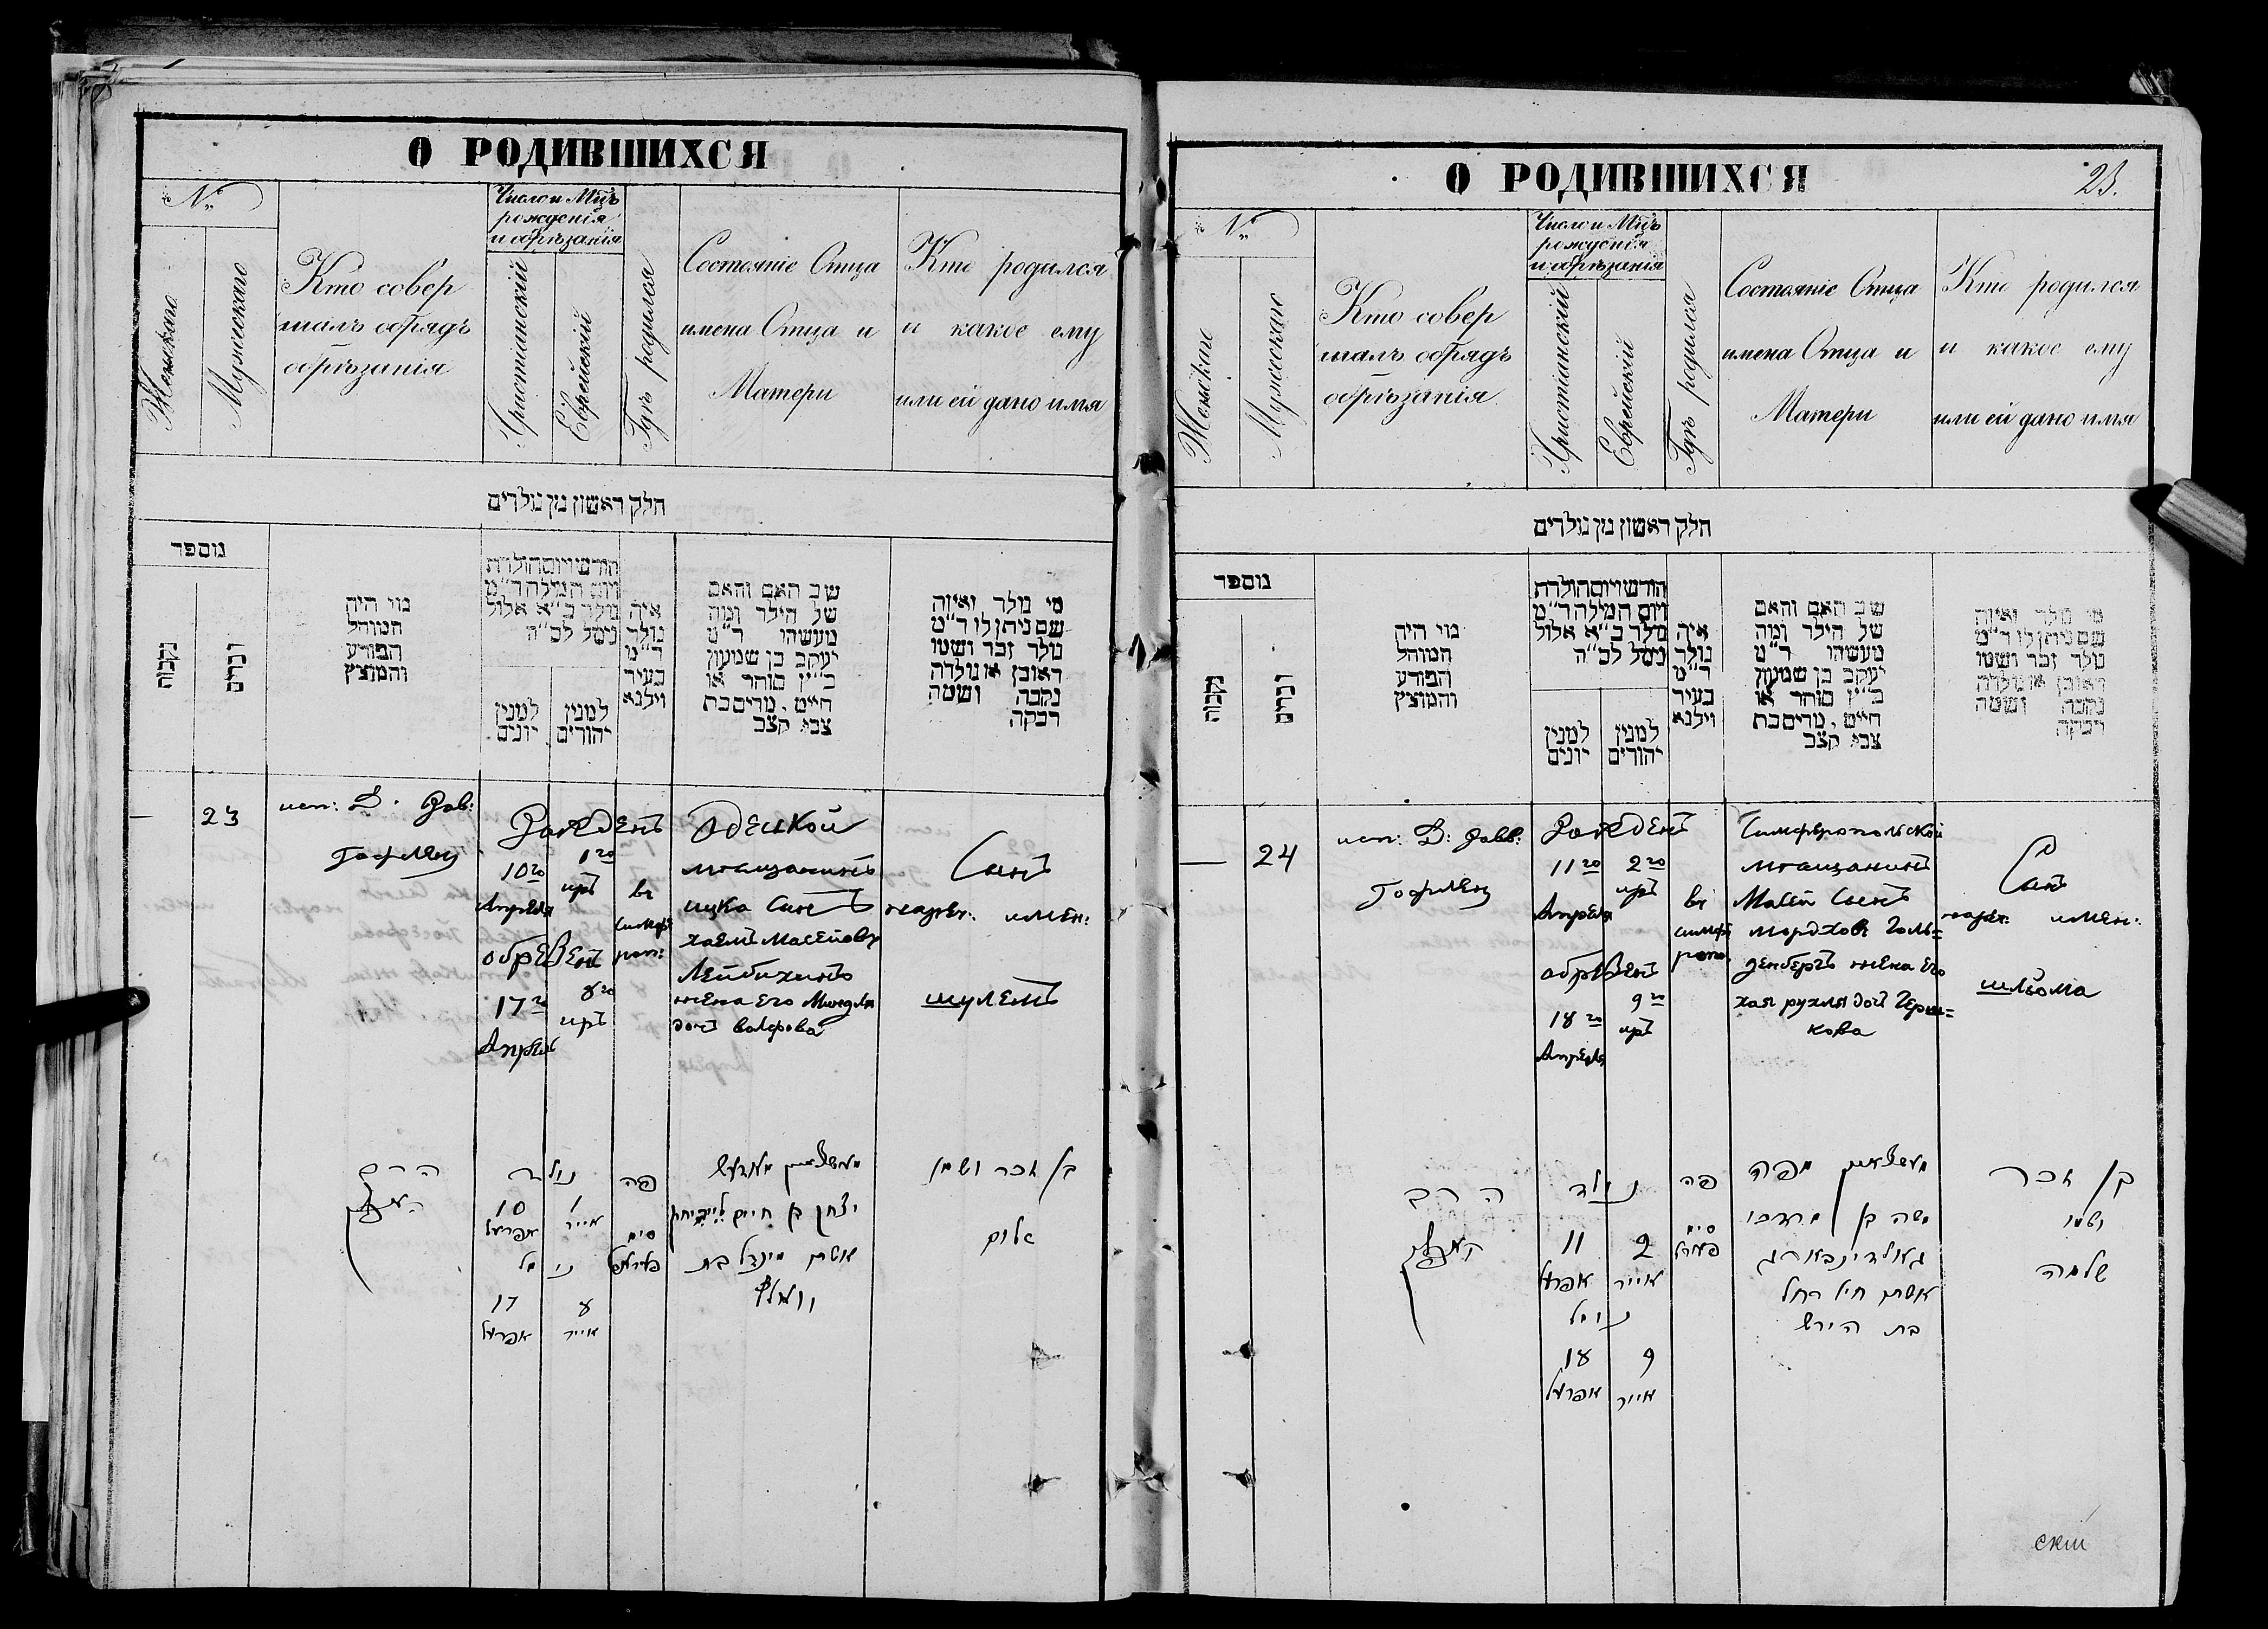 О РОДИВШИХСЯ
№
Женскаго
Мужескаго
Кто совер
шалъ обрядъ
обрѣзанія
Число и Мцъ
рожденія
и обрѣзанія
Христіанскій
Еврейскій
Гдѣ родился
Состояніе Отца
имена Отца и
Матери
Кто родился
и какое ему
или ей дано имя
חלק ראשון מן נולדים
נוספר
נקבות
זכרים
מי היה
המוהל
הפורע
והמוצץ
חודש ויום הולדת
ויום המילה ד"מ
נולד כ"א אלול
נימל לס"ה
למנין
יונים
למנין
יהודים
איה
נולד
ד"מ
בעיר
וילנא
שב האם והאם
של הילד ומה
מעשהו ד"מ
יעקב בן שמעון
כ"ץ סוחר או
חייט, מרים בת
צבי קצב
מי נולד ואיזה
שם ניתן לו ד"מ
נולד זכר ושמו
ראובן או נולדה
נקבה ושמה
רבקה
— 23
исп: Д. Рав:
Гофмен
Рожденъ
10го
Апреля
1го
иръ
обрезенъ
17го
Апреля
8го
иръ
въ
симфе
роп:
Одеской
мещанинъ
ицка Синъ
хаемъ Масейовъ
Лейбихинъ
жена его Миндля
дочъ волфова
Синъ
нареч: имен:
шулемъ
הרב
נולד
10
אפריל
1
אייר
נימל
17
אפריל
8
אייר
פה
סימ
פעראפל
מעשצאנין מאדעס
יצחק בן חיים לייביחין
אשתו מינדל בת
וואלף
בן זכר ושמו
שלום
О РОДИВШИХСЯ
23.
№
Женскаго
Мужескаго
Кто совер
шалъ обрядъ
обрѣзанія
Число и Мцъ
рожденія
и обрѣзанія
Христіанскій
Еврейскій
Гдѣ родился
Состояніе Отца
имена Отца и
Матери
Кто родился
и какое ему
или ей дано имя
חלק ראשון מן נולדים
נוספר
נקבות
זכרים
מי היה
המוהל
הפורע
והמוצץ
חודש ויום הולדת
ויום המילה ד"מ
נולד כ"א אלול
נימל לס"ה
למנין
יונים
למנין
יהודים
איה
נולד
ד"מ
בעיר
וילנא
שב האם והאם
של הילד ומה
מעשהו ד"מ
יעקב בן שמעון
כ"ץ סוחר או
חייט, מרים בת
צבי קצב
מי נולד ואיזה
שם ניתן לו ד"מ
נולד זכר ושמו
ראובן או נולדה
נקבה ושמה
רבקה
— 24
исп: Д: Равв:
Гофмен
Рожденъ
11го
Апреля
2го
иръ
обрезенъ
18го
Апреля
9го
иръ
въ
симфе
роп:
Симферопольской
мещанинъ
Масей Синъ
мордховъ Голь=
денбергъ жена его
хая рухля дочъ Герш=
кова
Синъ
нареч: имен:
шлѣома
הרב
נולד
11
אפריל
2
אייר
נימל
18
אפריל
9
אייר
פה
סימ
פעראפל
מעשצאנין מפה
משה בן מרדכי
גאולדינבארג
אשתו חיל רחל
בת הירש
בן זכר
ושמו
שלמה
скіи